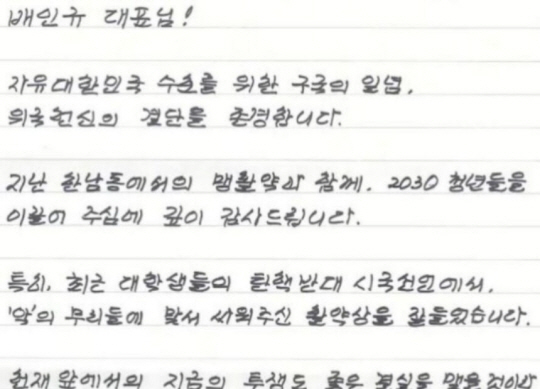 배인규 대표님!
자유대한민국 수호를 위한 구국의 일념,
위국헌신의 결단을 존경합니다.
지난 한남동에서의 맹활약과 함께, 2030 청년들을
이끌어 주심에 깊이 감사드립니다.
특히, 최근 대학생들의 탄핵반대 시국선언에서,
'악'의 무리들에 맞서 싸워주신 활약상을 잘들었습니다.
헌재 앞에서의 지금의 투쟁도 좋은 결실을 맺을 것이라